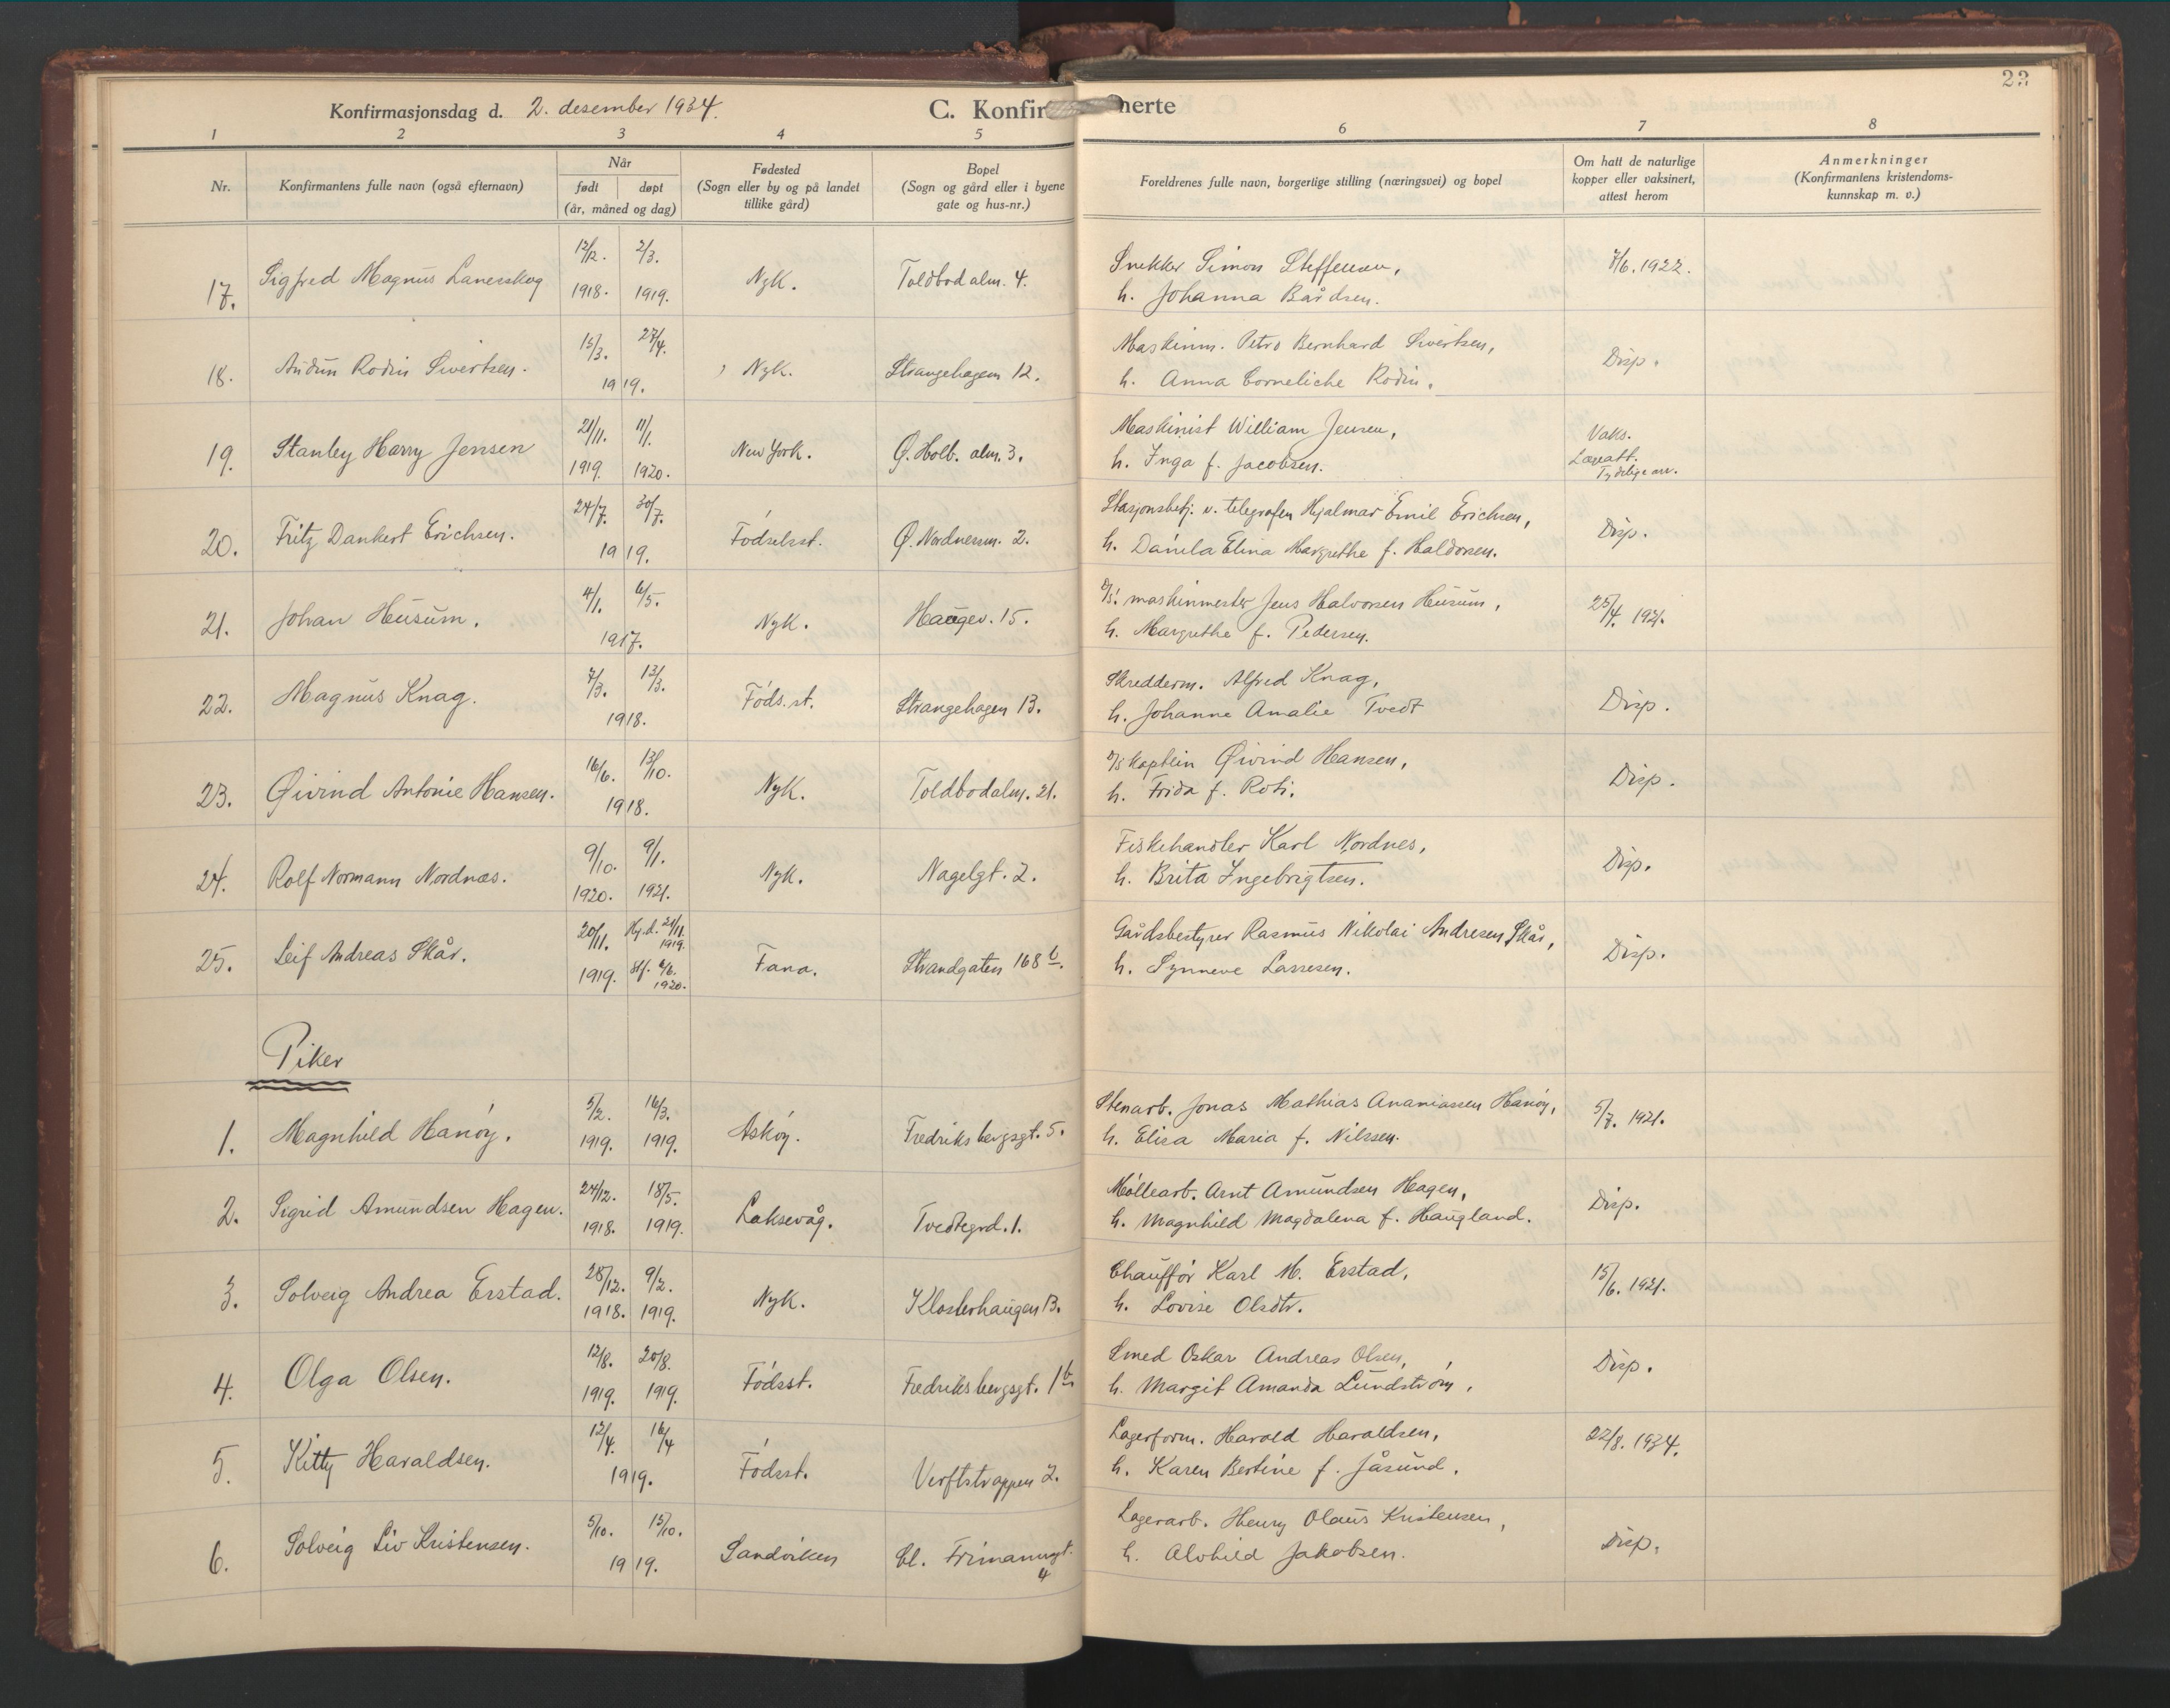 23
Konfirmasjonsdag d. 2. desember 1934. C. Konfir merte
1 2 3 4 5 6 7 8
Nr. Konfirmantens fulle navn (også efternavn) Når født døpt (år, måned og dag) Fødested (Sogn eller by og på landet tillike gård) Bopel (Sogn og gård eller i byene gate og hus-nr.) Foreldrenes fulle navn, borgerlige stilling (næringsvei) og bopel Om hatt de naturlige kopper eller vaksinert, attest herom Anmerkninger (Konfirmantens kristendoms-kunnskap m. v.)
17. Sigfred Magnus 12/12. 1918. 2/3. 1919. Nyk. Toldbod alm. 4. Snekker Simon Steffensen, 7/6. 1922.
h. Johanna Bårdsen.
18. Audun Rodin Sivertsen. 15/3. 27/4. 1919. Nyk. Strangehagen 12. Maskinm. Petro Bernhard Sivertsen, Disp.
h. Anna Corneliche Rodin.
19. Stanley Harry Jensen 21/11. 1919. 11/1. 1920. New York. Ø. Holb. alm. 3. Maskinist William Jensen, Vaks. Lægeatt. Tydelige arr.
h. Inga f. Jacobsen.
20. Fritz Dankert Erichsen. 24/7. 30/7. 1919. Fødselsst. Ø. Nordnessm. 2. Stasjonsbetj. v. telegrafen Hjalmar Emil Erichsen, Disp.
h. Danila Elina Margrethe f. Haldorsen.
21. Johan Husum. 4/1. 6/5. 1917. Nyk. Haugev. 15. D/S. maskinmester Jens Halvorsen Husum, 25/4. 1921.
h. Margrethe f. Pedersen.
22. Magnus Knag. 7/3. 13/3. 1918. Føds. st. Strangehagen 13. Skredderm. Alfred Knag, Disp.
h. Johanne Amalie Tvedt
23. Øivind Antonie Hansen. 16/6. 13/10. 1918. Nyk. Toldbodalm. 21. D/S kaptein Øivind Hansen, Disp.
h. Frida f. Roti.
24. Rolf Normann Nordnæs. 9/10. 1920. 9/1. 1921. Nyk. Nagelgt. 2. Fiskehandler Karl Nordnes, Disp.
h. Brita Ingebrigtsen.
25. Leif Andreas Skår. 20/11. 1919. Hj.d. 21/11. 1919. Stf. 6/6. 1920. Fana. Strandgaten 168 b. Gårdsbestyrer Rasmus Nikolai Andresen Skår, Disp.
h. Synneve Lassesen.
Piker
1. Magnhild Hanøy. 5/2. 1919. 16/3. 1919. Askøy. Fredriksbergsgt. 5. Stenarb. Jonas Mathias Ananiassen Hanøy, 5/7. 1921.
h. Elisa Maria f. Nilssen.
2. Sigrid Amundsen Hagen. 24/12. 1918. 18/5. 1919. Laksevåg. Tvedtegrd. 1. Møllearb. Arnt Amundsen Hagen, Disp.
h. Magnhild Magdalena f. Haugland.
3. Solveig Andrea Erstad. 28/12. 1918. 9/2. 1919. Nyk. Klosterhaugen 13. Chauffør Karl M. Erstad, 15/6. 1921.
h. Lovise Olsdtr.
4. Olga Olsen. 12/8. 1919. 20/8. 1919. Fødsst. Fredriksbergsgt. 1 b Smed Oskar Andreas Olsen, Disp.
h. Margit Amanda Lundstrøm.
5. Kitty Haraldsen. 12/4. 16/4 1919. Fødsst. Verftstrappen 2. Lagerform. Harald Haraldsen, 22/8. 1934.
h. Karen Bertine f. Jåsund.
6. Solveig Liv Kristensen. 5/10. 15/10. 1919. Sandviken Cl. Frimannsgt. 4 Lagerarb. Henry Olaus Kristensen, Disp.
h. Alvhild Jakobsen.